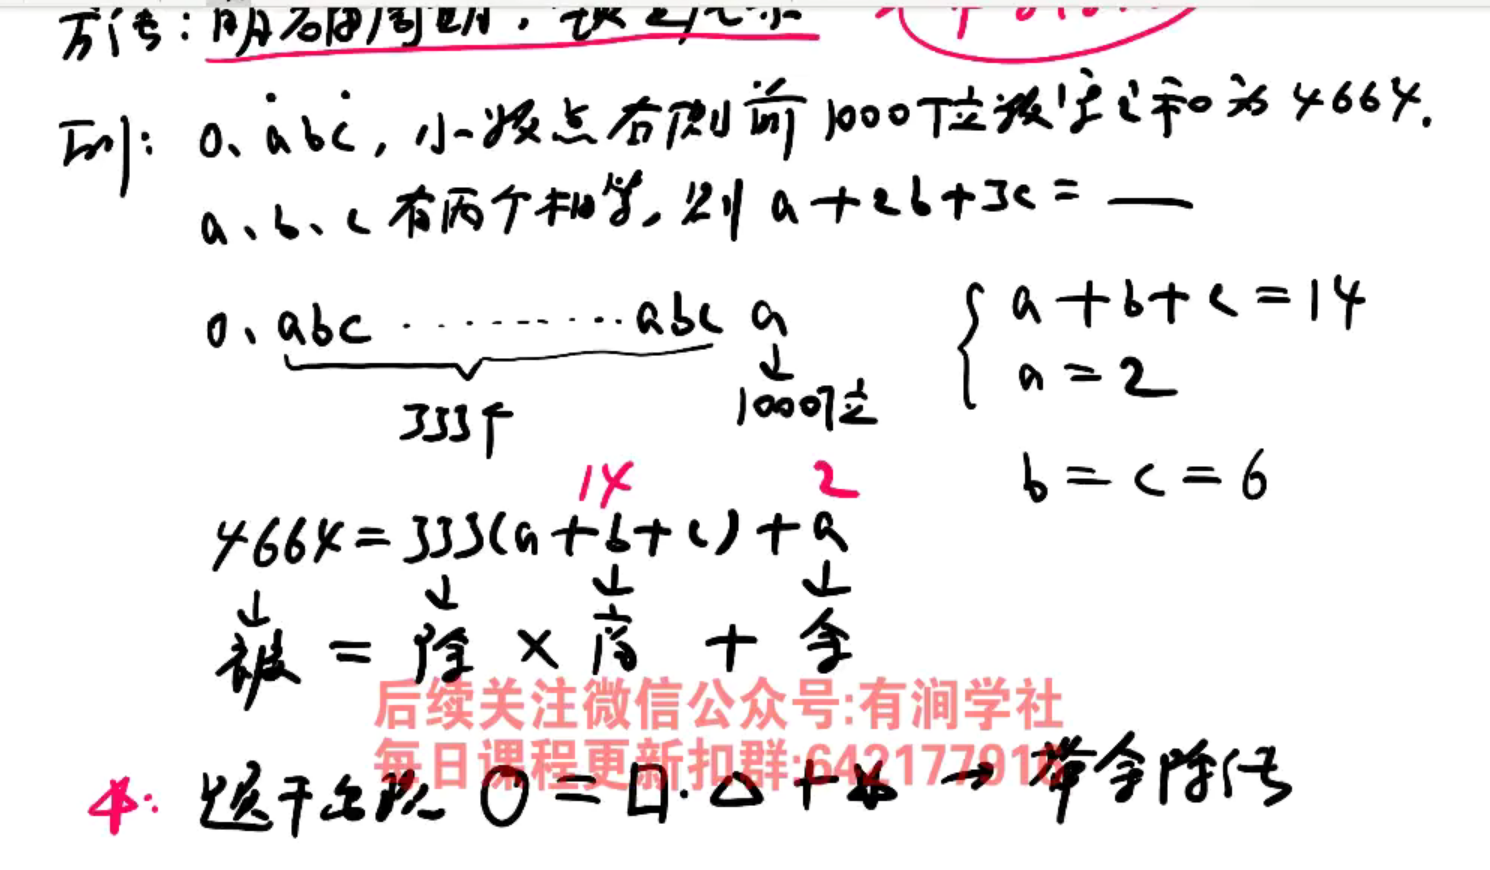 方法:明确周期,
例: 0.ȧbċ, 小数点右侧前1000个位数字之和为4664.
a、b、c有两个相等,则a+2b+3c=__
0.abc·········abc a
333个
1000位
{a+b+c=14
a=2
b=c=6
14 2
4664=333(a+b+c)+a
被=除×商+余
后续关注微信公众号:有涧学社
每日课程更新扣群:642177916
*: 题干出现○=□·△+☆→带余除法